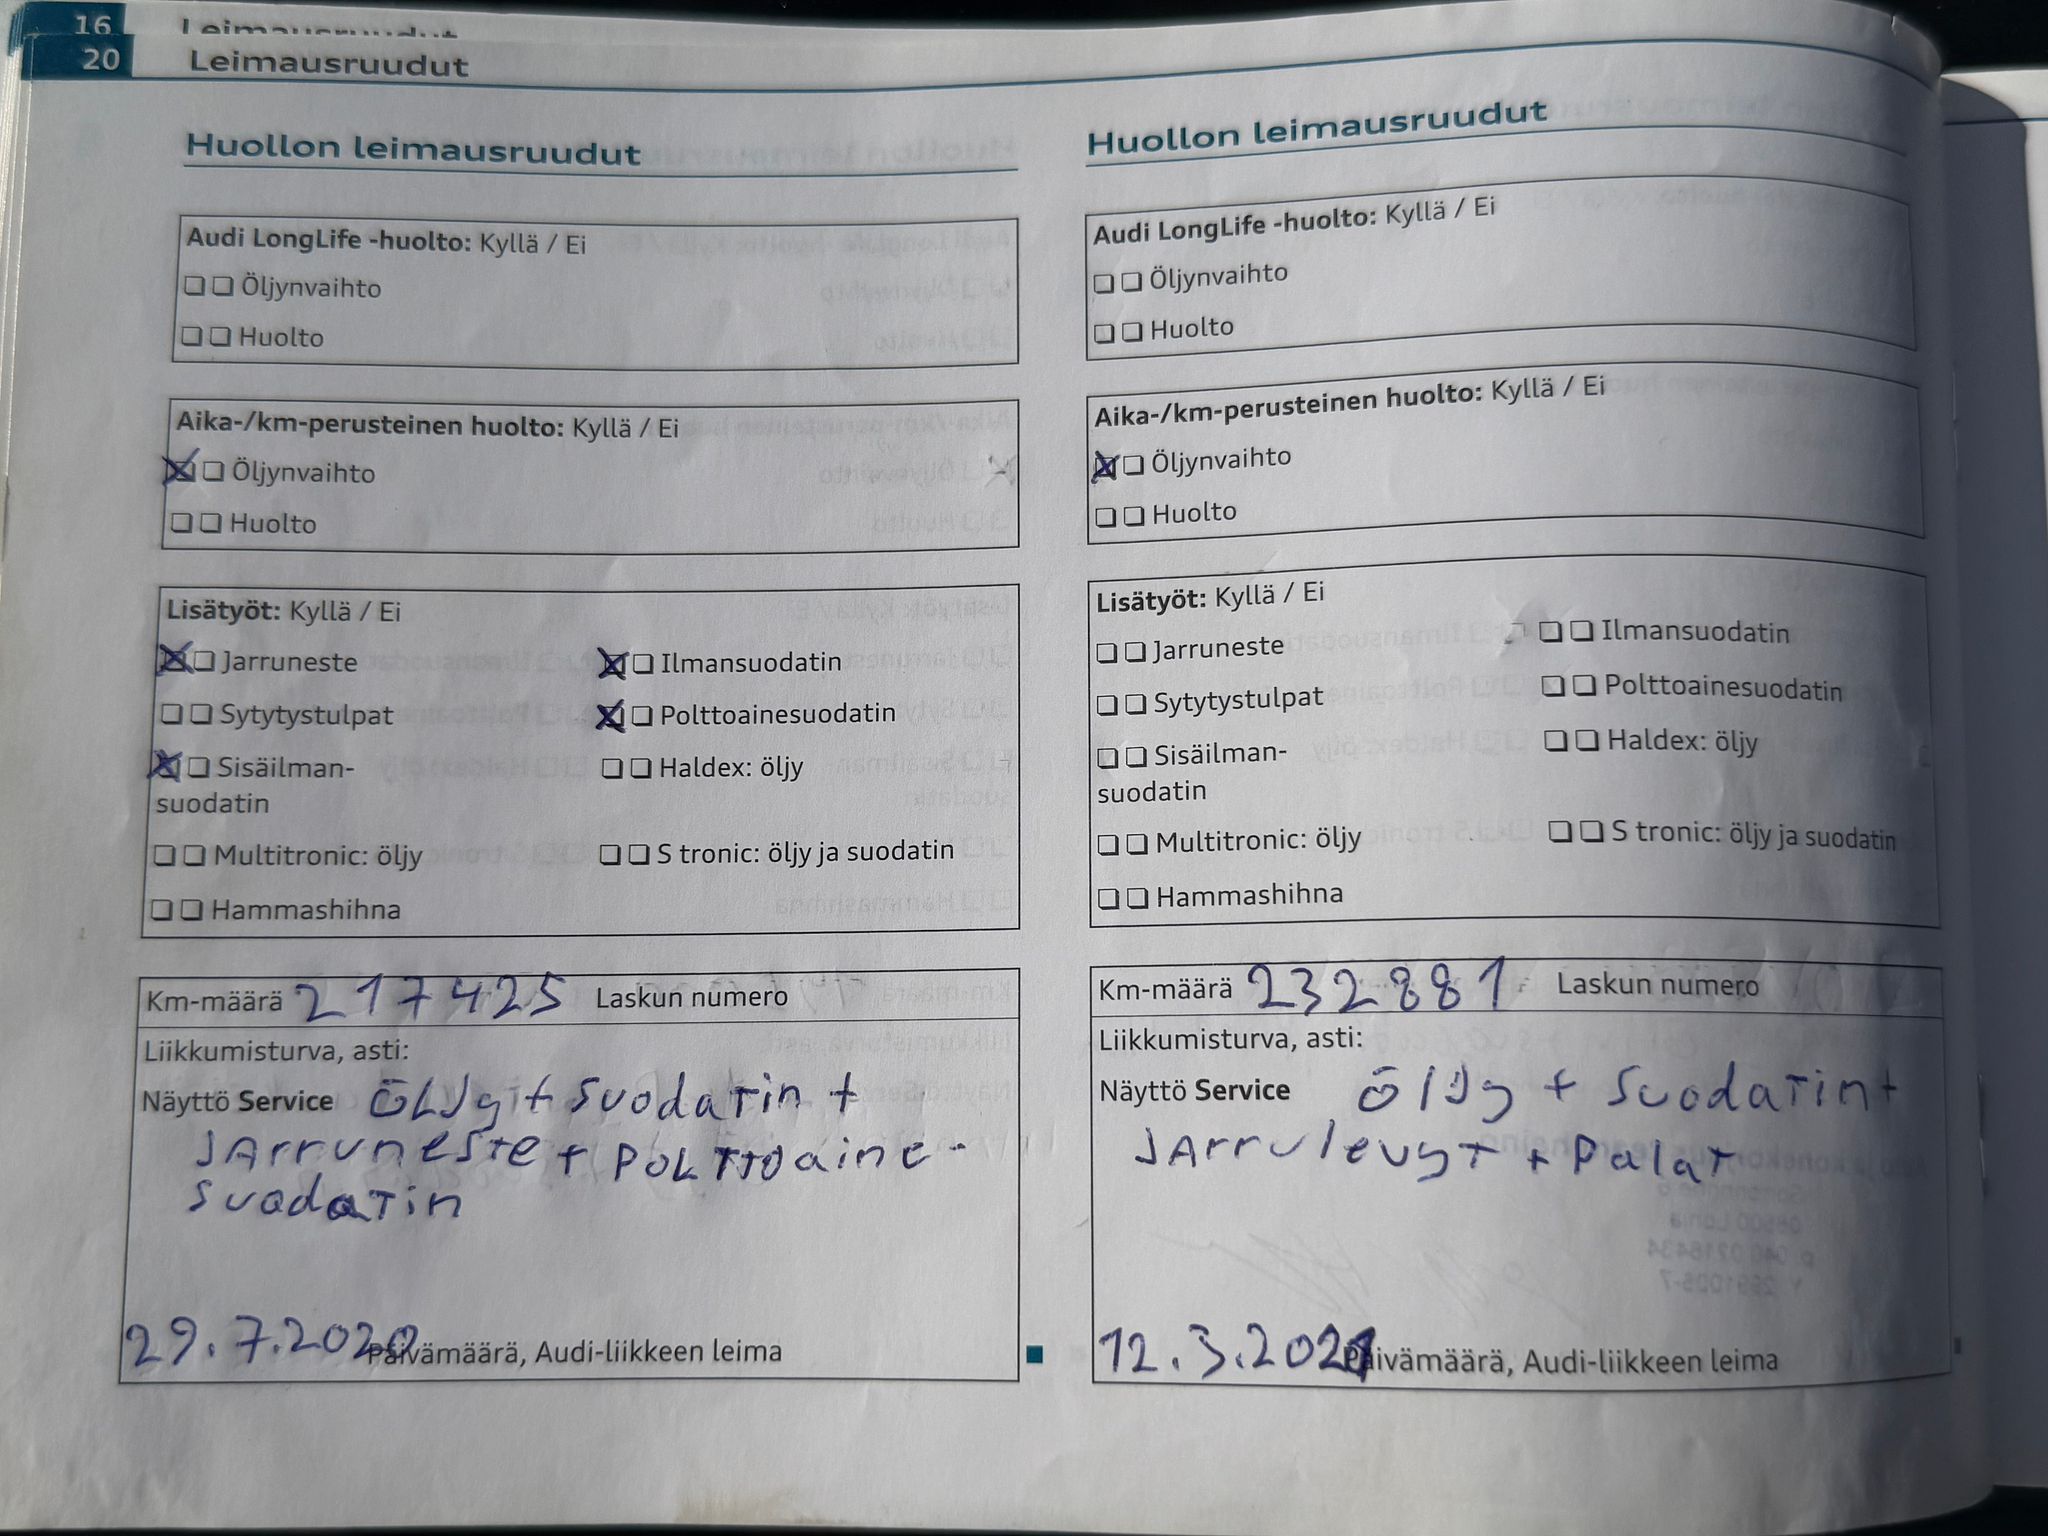 16 Leimausruudut
20 Leimausruudut
Huollon leimausruudut
Audi LongLife -huolto: Kyllä / Ei
❏ ❏ Öljynvaihto
❏ ❏ Huolto
Aika-/km-perusteinen huolto: Kyllä / Ei
☒ ❏ Öljynvaihto
❏ ❏ Huolto
Lisätyöt: Kyllä / Ei
☒ ❏ Jarruneste ☒ ❏ Ilmansuodatin
❏ ❏ Sytytystulpat ☒ ❏ Polttoainesuodatin
☒ ❏ Sisäilman- ❏ ❏ Haldex: öljy
suodatin
❏ ❏ Multitronic: öljy ❏ ❏ S tronic: öljy ja suodatin
❏ ❏ Hammashihna
Km-määrä 217425 Laskun numero
Liikkumisturva, asti:
Näyttö Service ÖLJy + suodatin +
JArruneste + POLTTOaine-
suodatin
29.7.2020 Päivämäärä, Audi-liikkeen leima
Huollon leimausruudut
Audi LongLife -huolto: Kyllä / Ei
❏ ❏ Öljynvaihto
❏ ❏ Huolto
Aika-/km-perusteinen huolto: Kyllä / Ei
☒ ❏ Öljynvaihto
❏ ❏ Huolto
Lisätyöt: Kyllä / Ei
❏ ❏ Jarruneste ❏ ❏ Ilmansuodatin
❏ ❏ Sytytystulpat ❏ ❏ Polttoainesuodatin
❏ ❏ Sisäilman- ❏ ❏ Haldex: öljy
suodatin
❏ ❏ Multitronic: öljy ❏ ❏ S tronic: öljy ja suodatin
❏ ❏ Hammashihna
Km-määrä 232881 Laskun numero
Liikkumisturva, asti:
Näyttö Service ÖlJy + suodatin +
JArrulevyt + Palat
12.3.2021 Päivämäärä, Audi-liikkeen leima